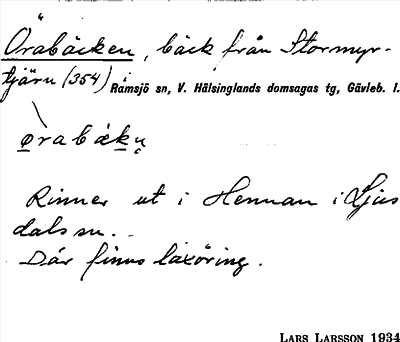 Örabäcken, bäck från Stormyr-
tjärn (354) i Ramsjö sn, V. Hälsinglands domsagas tg, Gävleb. l.
ørabäkn̥
Rinner ut i Hennan i Ljus
dals sn.
Där finns laxöring.
LARS LARSSON 1934